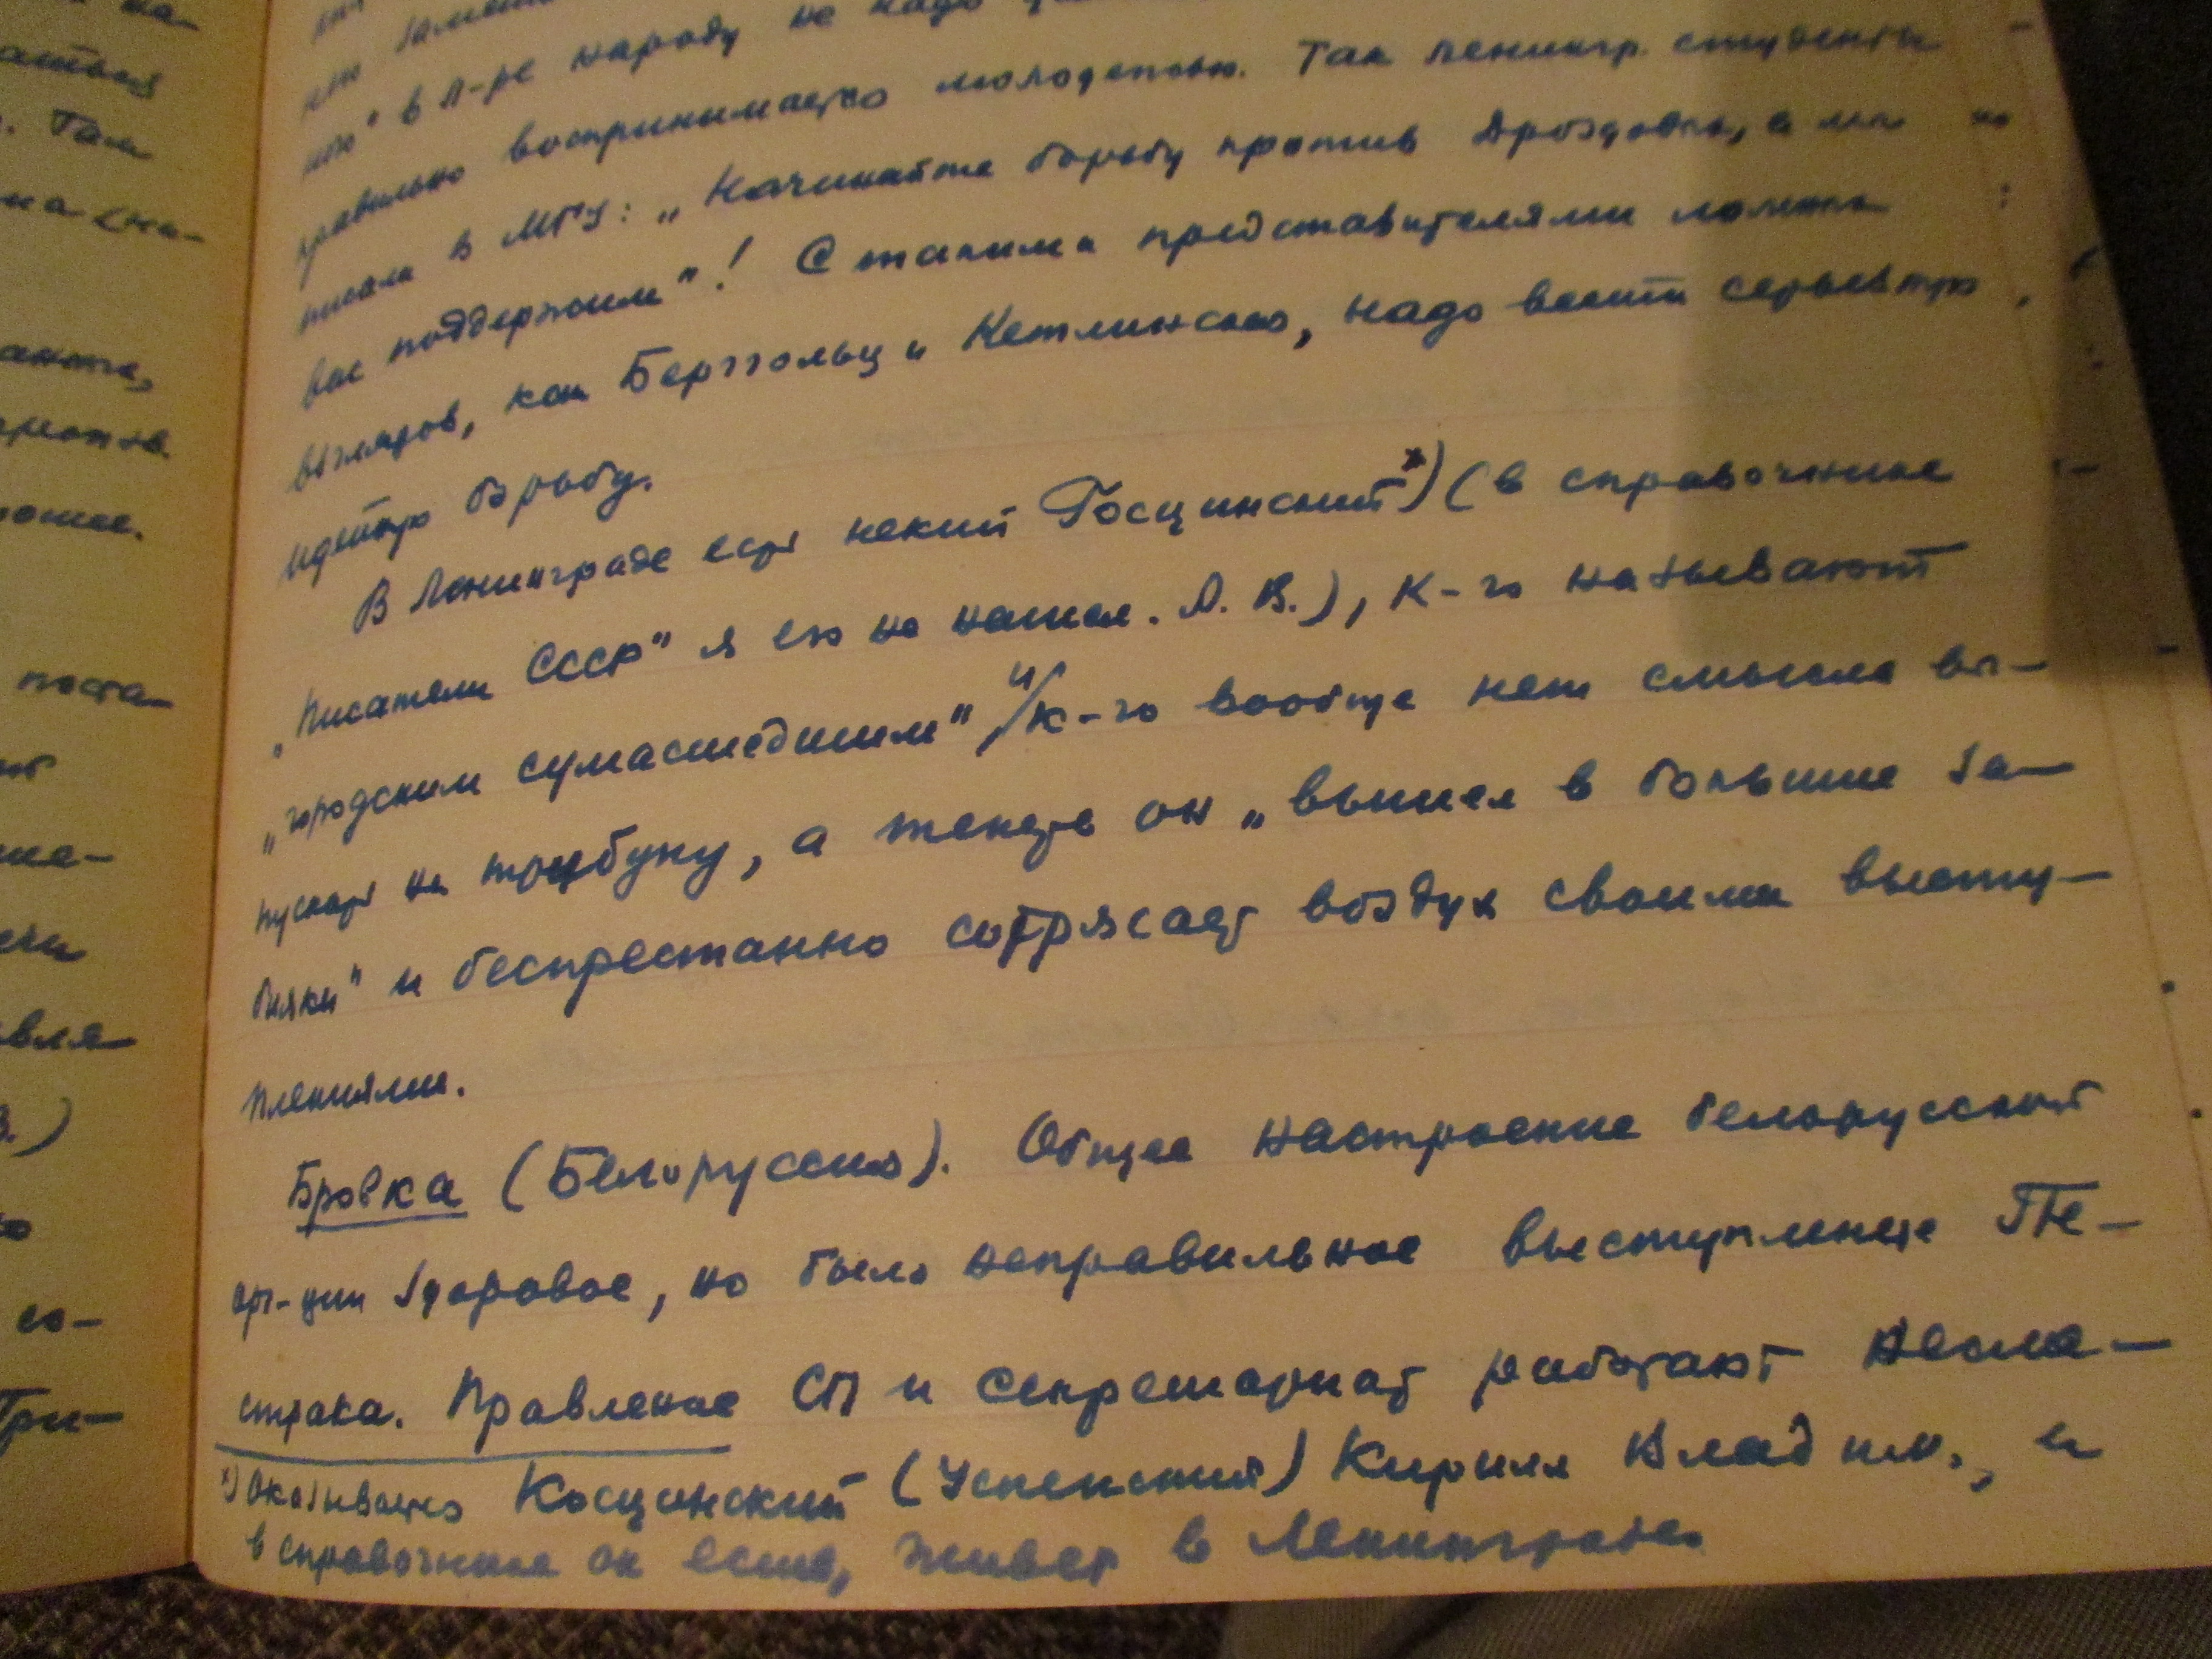 на-
. Там
анте,
поста-
вля-
В.)
со-
Три-
ною" в л-ре народу не надо
правильно воспринимается молодежью. Так ленингр. студенты
писали в МГУ: „Начинайте борьбу против Дроздовых, а мы
вас поддержим"! С такими представителями ложных
взглядов, как Берггольц и Кетлинская, надо вести серьезную
идейную борьбу.
В Ленинграде есть некий Госцинский*) (в справочнике
„Писатели СССР" я его не нашел. Л. В.), к-го называют
„городским сумасшедшим" и к-го вообще нет смысла вы-
пускать на трибуну, а теперь он „вышел в большие за-
бияки" и беспрестанно сотрясает воздух своими высту-
плениями.
Бровка (Белоруссия). Общее настроение белорусской
орг-ции здоровое, но было неправильное выступление Пе-
страка. Правление СП и секретариат работают неслa-
*) Оказывается Косцинский (Успенский) Кирилл Владим., и
в справочнике он есть, живет в Ленинграде.